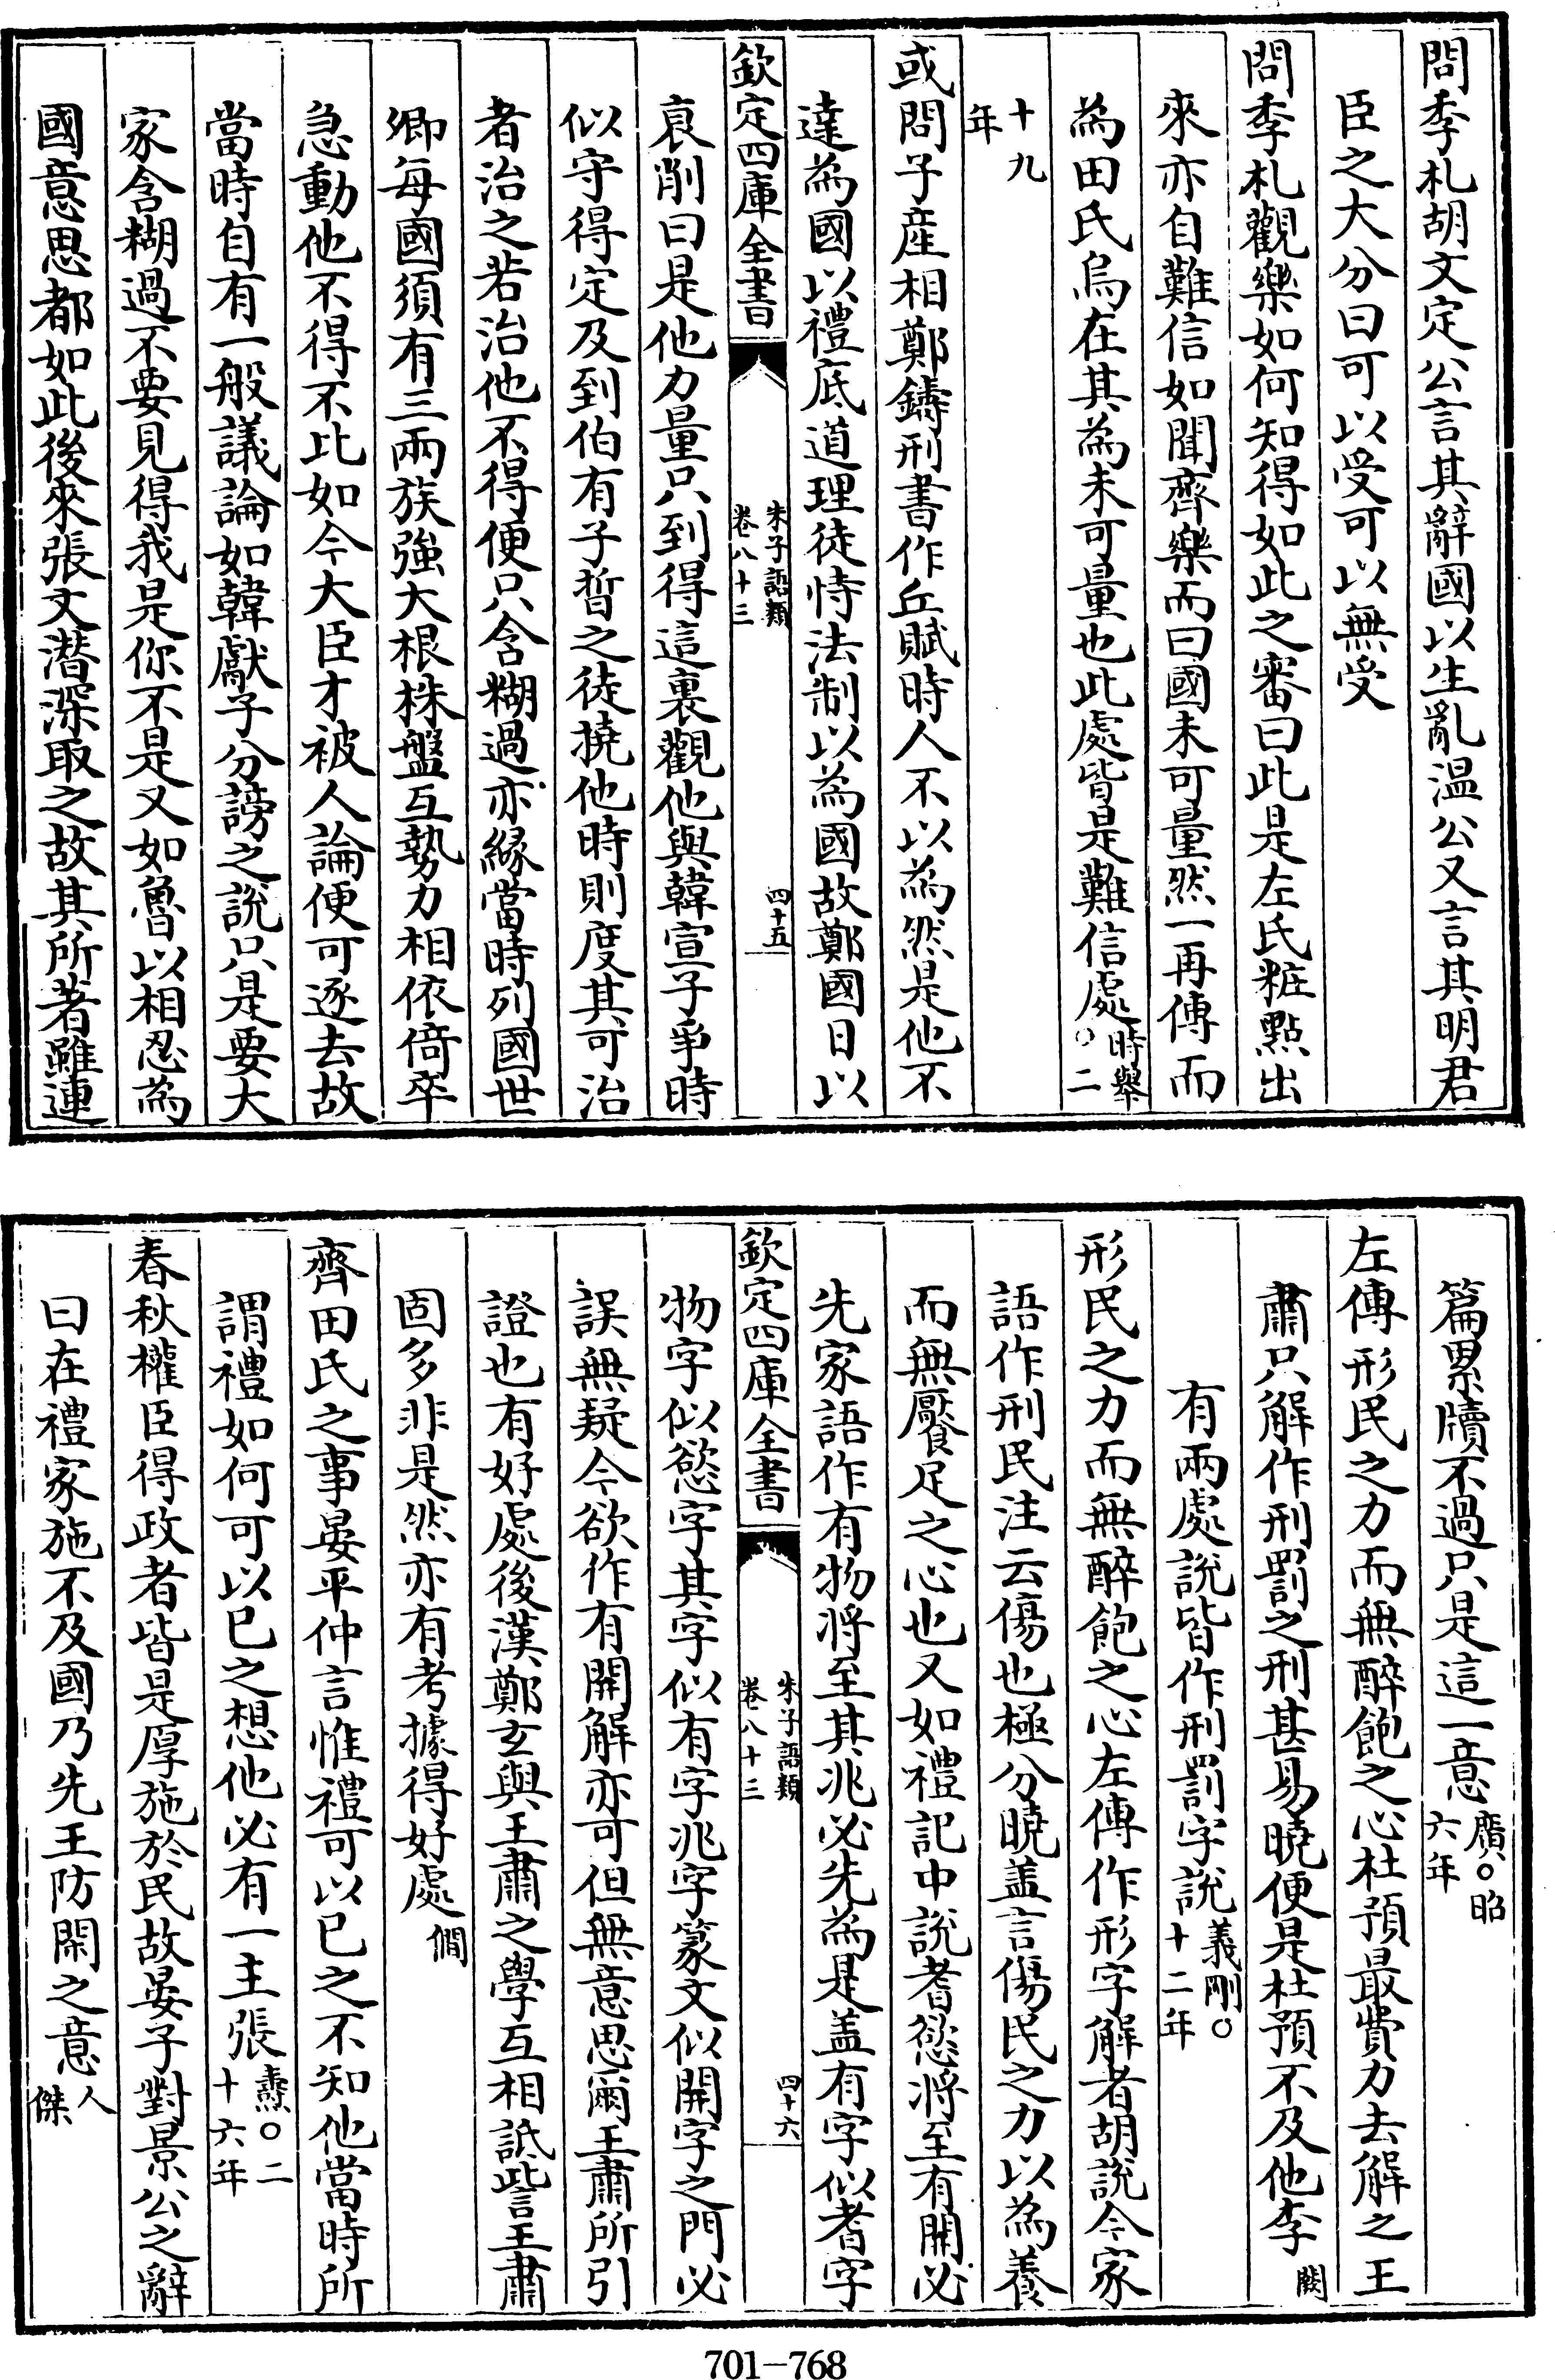 問季札胡文定公言其辭國以生亂温公又言其明君
臣之大分曰可以受可以無受
問季札觀樂如何知得如此之審曰此是左氏粧點出
來亦自難信如聞齊樂而曰國未可量然一再傳而
為田氏烏在其為未可量也此處皆是難信處時舉○二
十九年
或問子産相鄭鑄刑書作丘賦時人不以為然是他不
達為國以禮底道理徒恃法制以為國故鄭國日以
欽定四庫全書
朱子語類
卷八十三
四十五
衰削曰是他力量只到得這裏觀他與韓宣子爭時
似守得定及到伯有子晳之徒撓他時則度其可治
者治之若治他不得便只含糊過亦緣當時列國世
卿每國須有三兩族強大根株盤互勢力相依倚卒
急動他不得不比如今大臣才被人論便可逐去故
當時自有一般議論如韓獻子分謗之說只是要大
家含糊過不要見得我是你不是又如魯以相忍為
國意思都如此後來張文潜深取之故其所著雖連
篇累牘不過只是這一意廣○昭六年
左傳形民之力而無醉飽之心杜預最費力去解之王
肅只解作刑罰之刑甚易曉便是杜預不及他李閎
有兩處說皆作刑罰字說義剛○十二年
形民之力而無醉飽之心左傳作形字解者胡說今家
語作刑民注云傷也極分曉盖言傷民之力以為養
而無饜足之心也又如禮記中說耆慾將至有開必
先家語作有物將至其兆必先為是盖有字似耆字
欽定四庫全書
朱子語類
卷八十三
四十六
物字似慾字其字似有字兆字篆文似開字之門必
誤無疑今欲作有開解亦可但無意思爾王肅所引
證也有好處後漢鄭玄與王肅之學互相詆訾王肅
固多非是然亦有考據得好處僩
齊田氏之事晏平仲言惟禮可以已之不知他當時所
謂禮如何可以已之想他必有一主張燾○二十六年
春秋權臣得政者皆是厚施於民故晏子對景公之辭
曰在禮家施不及國乃先王防閑之意人傑
701-768